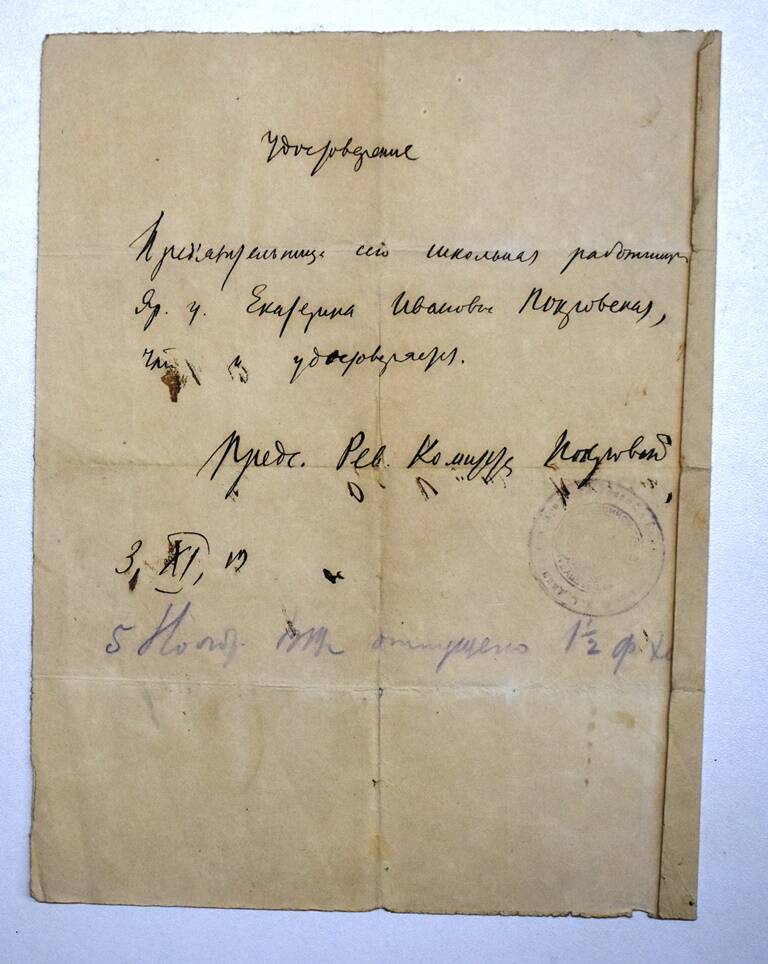 Удостоверение
Предъявительница сего школьная работница
Яр. у. Екатерина Ивановна Покровская,
что и удостоверяется.
Предс. Рев. Комитета
3, XI, 19
5 Нояб. 1919 отпущено 1½ ф.